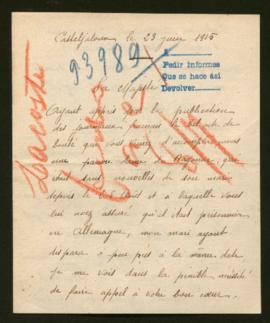 Casteljaloux le 23 juin 1915
93989
A
Pedir Informes
Que se hace así
Devolver
Lacoste
Ayant appris par la publication
des journaux français
bonté que vous venez d'accomplir envers
une pauvre femme de
était sans nouvelles de son mari
depuis le août et à laquelle vous
lui avez assuré qu'il était prisonnier
en Allemagne, mon mari ayant
disparu à peu près à la même date
je me vois dans la pénible nécessité
de faire appel à votre bon cœur.